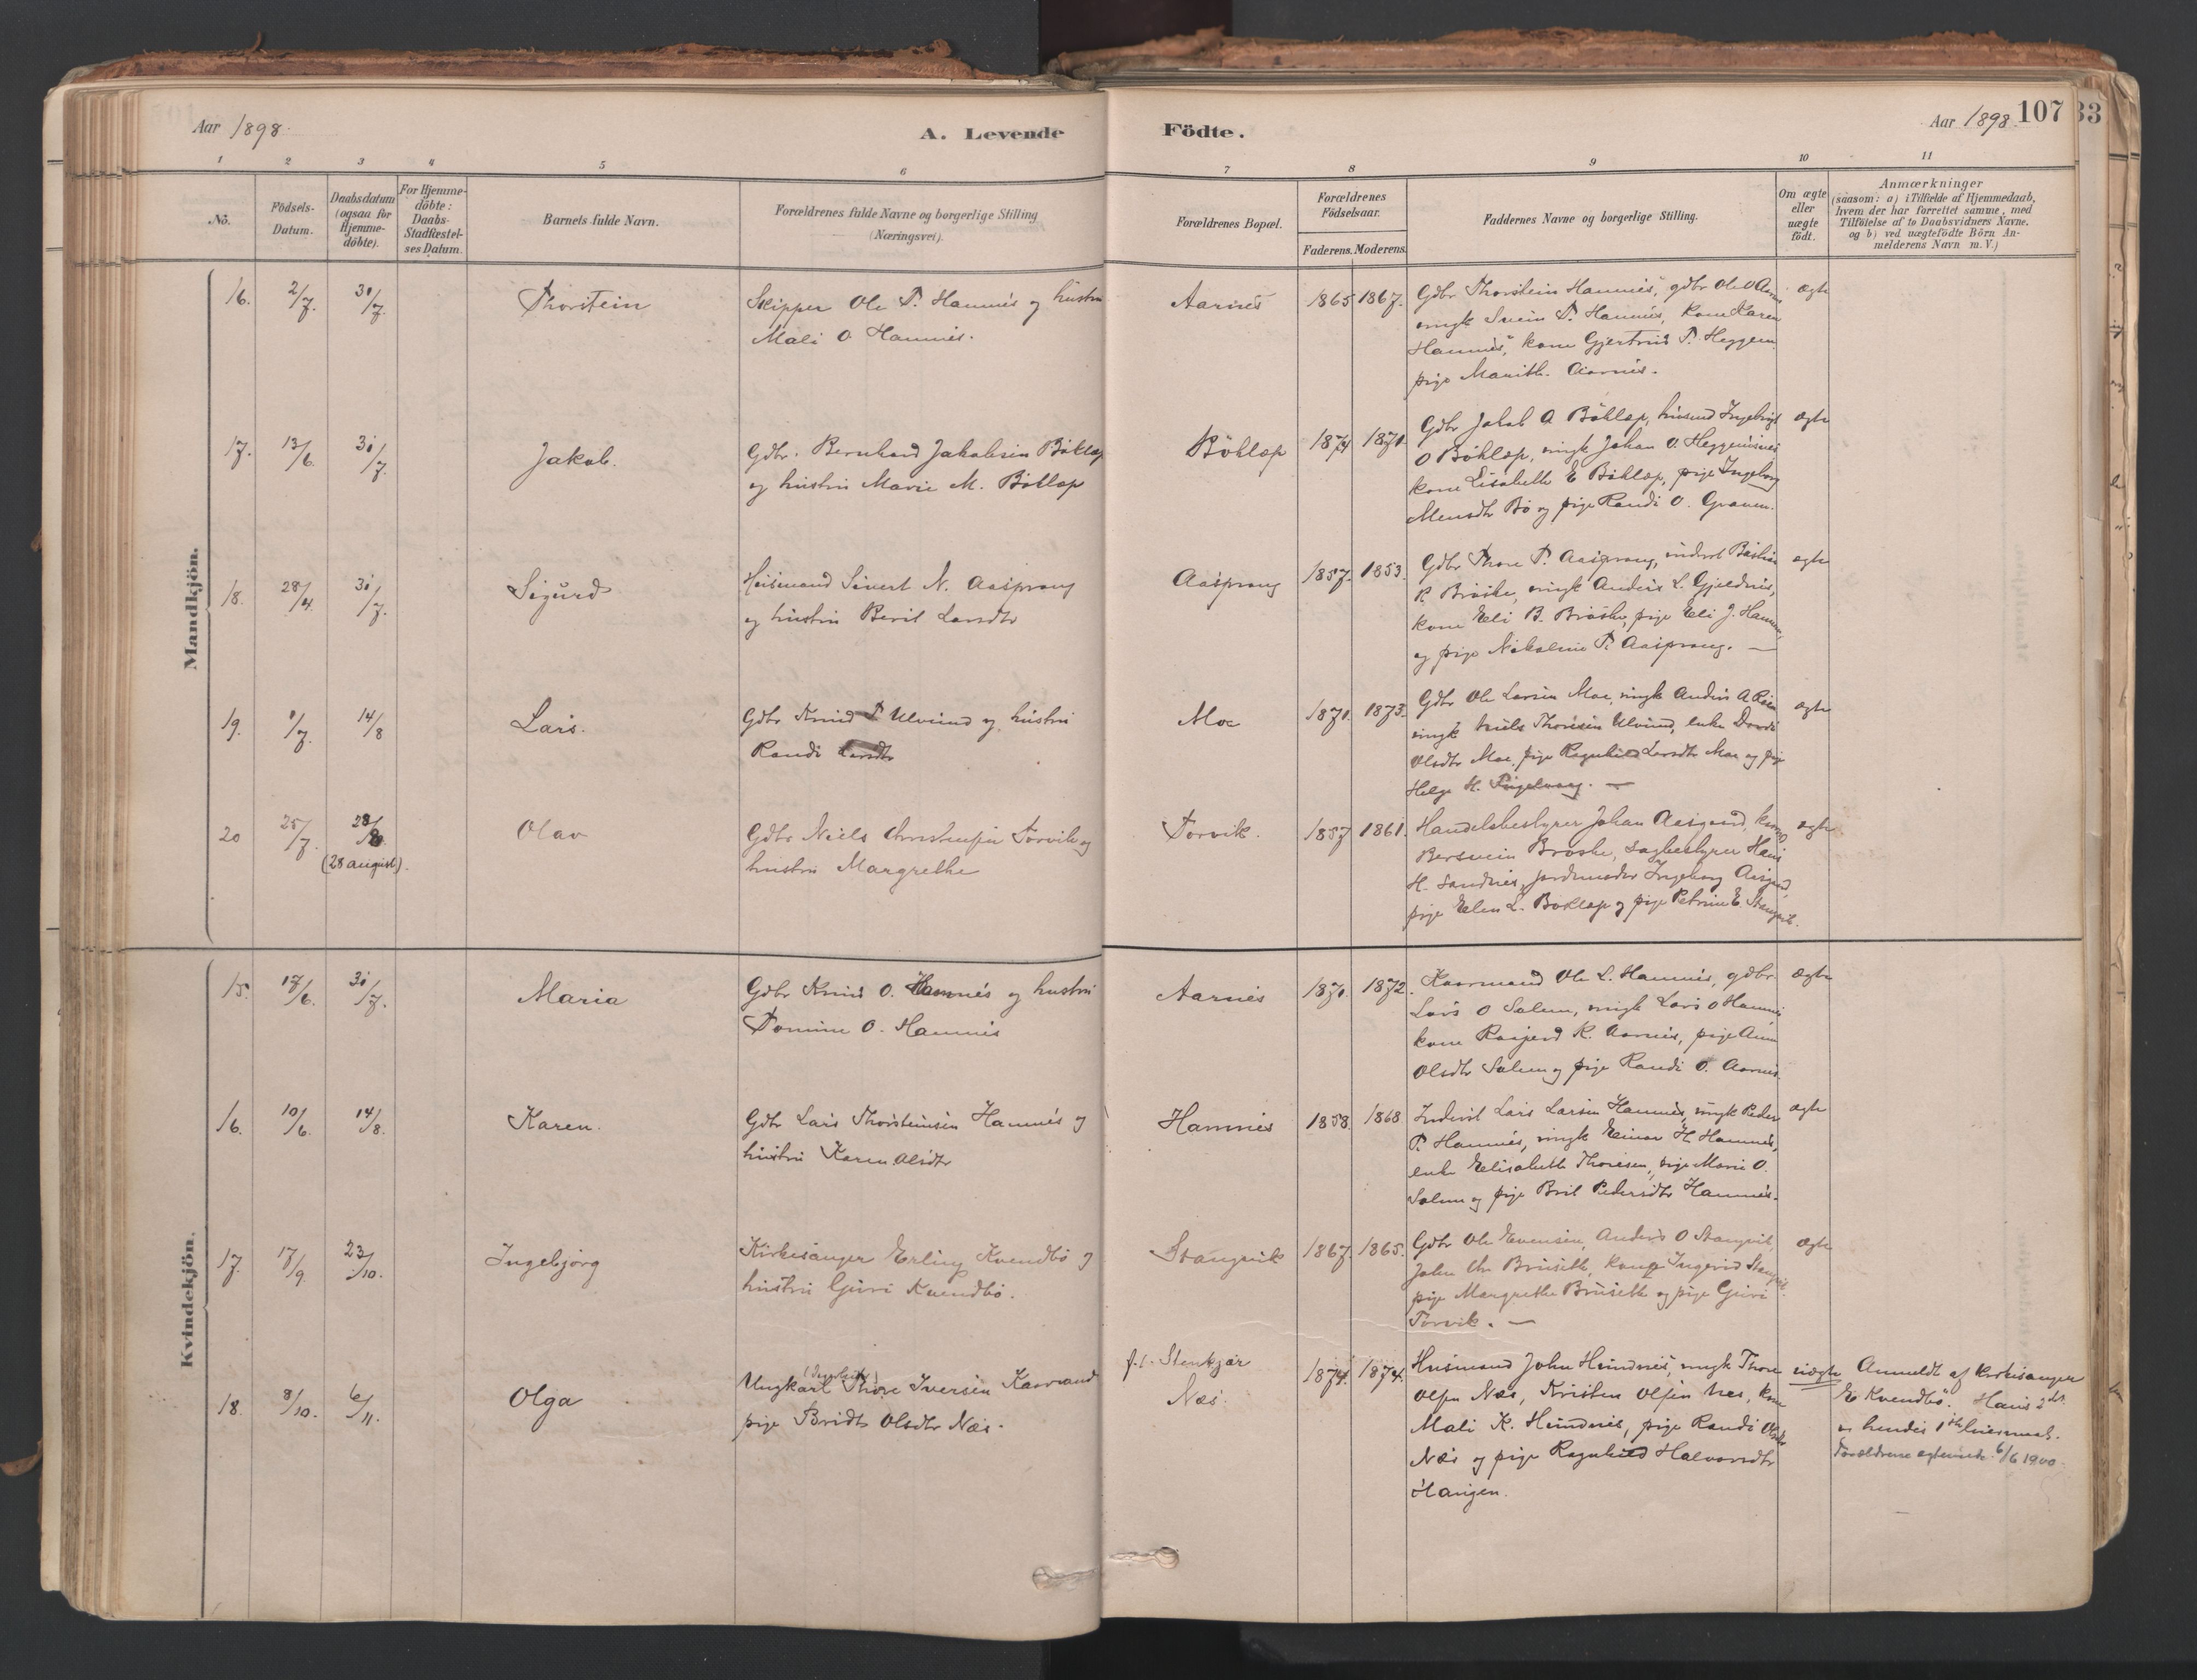 Aar 1898.
A. Levende
Födte.
Aar 1898.
107
33
1
2
3
4
5
6
7
8
9
10
11
No.
Födsels-
Datum.
Daabsdatum
(ogsaa for
Hjemme-
döbte).
For Hjemme-
döbte:
Daabs-
Stadfæstel-
ses Datum.
Barnets fulde Navn.
Forældrenes fulde Navne og borgerlige Stilling
(Næringsvei).
Forældrenes Bopæl.
Forældrenes
Födselsaar.
Faderens.
Moderens.
Faddernes Navne og borgerlige Stilling.
Om ægte
eller
uægte
födt.
Anmærkninger
(saasom: a) i Tilfælde af Hjemmedaab,
hvem der har forrettet samme, med
Tilföielse af to Daabsvidners Navne.
og b) ved uægtefödte Börn An-
melderens Navn m.V.)
Mandkjön.
16.
2/7.
31/7.
Thorstein
Skipper Ole T. Hamnes og hustru
Mali O Hamnes.
Aarnes
1865
1867.
Gdbr Thorstein Hamnes, gdbr Ole O Aarnes
ungk Svein T. Hamnes, kone Karen
Hamnes, kone Gjertrud T. Heggem
pige Marith. Aarnes.
ægte
17.
13/6.
31/7.
Jakob.
Gdbr. Bernhard Jakobsen Böklep
og hustru Marie M. Böklep
Böklep
1874
1871.
Gdbr Jakob A Böklep, husmd Ingebrigt
O Böklep, ungk Johan O. Heggemsnes
kone Lisabeth E Böklep, pige Ingeborg
Monsdtr Bö og pige Randi O. Graven.
ægte
18.
28/4.
31/7.
Sigurd
Husmand Sivert N. Aasprong
og hustru Berit Larsdtr
Aasprong
1857.
1853.
Gdbr Thore T. Aasprong, inderst Bastian
R. Bröske, ungk Anders L. Gjeldnes,
kone Eli B. Bröske, pige Eli J. Hamnes,
og pige Nikoline T. Aasprong. —
ægte
19.
1/7.
14/8
Lars.
Gdbr Knud T Ulvund og hustru
Randi Larsdtr
Moe
1871.
1873.
Gdbr Ole Larsen Moe, ungk Anders A
ungk Niels Thoresen Ulvund, enke Dordi
Olsdtr Moe, pige Ragnhild Larsdtr Moe og pige
Helge K. Fugelvaag. —
ægte
20
25/7.
28/8
(28 august).
Olav
Gdbr Niels Christensen Torvik og
hustru Margrethe
Torvik.
1857
1861.
Handelsbestyrer Johan Aasgaard,
Bersvein Bröske, Sagbestyrer Hans
H. Sandnes, jordmoder Ingeborg Aasgaard,
pige Elen L. Böklep og pige Petrine E. Stangvik.
ægte
Kvindekjön.
15.
17/6.
31/7.
Maria
Gdbr Knud O. Hamnes og hustru
Tomine O. Hamnes
Aarnes
1871.
1872.
Kaarmand Ole L. Hamnes, gdbr
Lars O Salem, ungk Lars O Hamnes
kone Ragjerd K. Aarnes, pige Anne
Olsdtr Salem og pige Randi O. Aarnes.
ægte
16.
10/6.
14/8.
Karen.
Gdbr Lars Thorsteinsen Hamnes og
hustru Karen Olsdtr
Hamnes
1858.
1868
Inderst Lars Larsen Hamnes, ungk Peder
P. Hamnes, ungk Einar H. Hamnes,
enke Elisabeth Thoresen, pige Marie O.
Salem og pige Brit Pedersdtr Hamnes.
ægte
17.
17/9.
23/10.
Ingebjörg
Kirkesanger Erling Kvendbö og
hustru Guri Kvendbö.
Stangvik
1867.
1865.
Gdbr Ole Evensen, Anders O Stangvik,
John Chr Bruseth, kone Ingerid Stangvik
pige Margrethe Bruseth og pige Guri
Torvik. —
ægte
18.
8/10.
6/11.
Olga
Ungkarl Thore Iversen Kaarvand
pige Bridt Olsdtr Næs.
f.t. Stenkjær
Næs.
1874.
1874.
Husmand John Hindnes, ungk Thore
Olsen Næs, Kristen Olsen Næs, kone
Mali K. Hindnes, pige Randi Olsdtr
Næs og pige Ragnhild Halvorsdtr
Hangen.
uægte
Anmeldt af Kirkesanger
E Kvendbö. Hans 2det
og hendes 1ste leiermaal.
Forældrene ægteviede 6/6 1900.